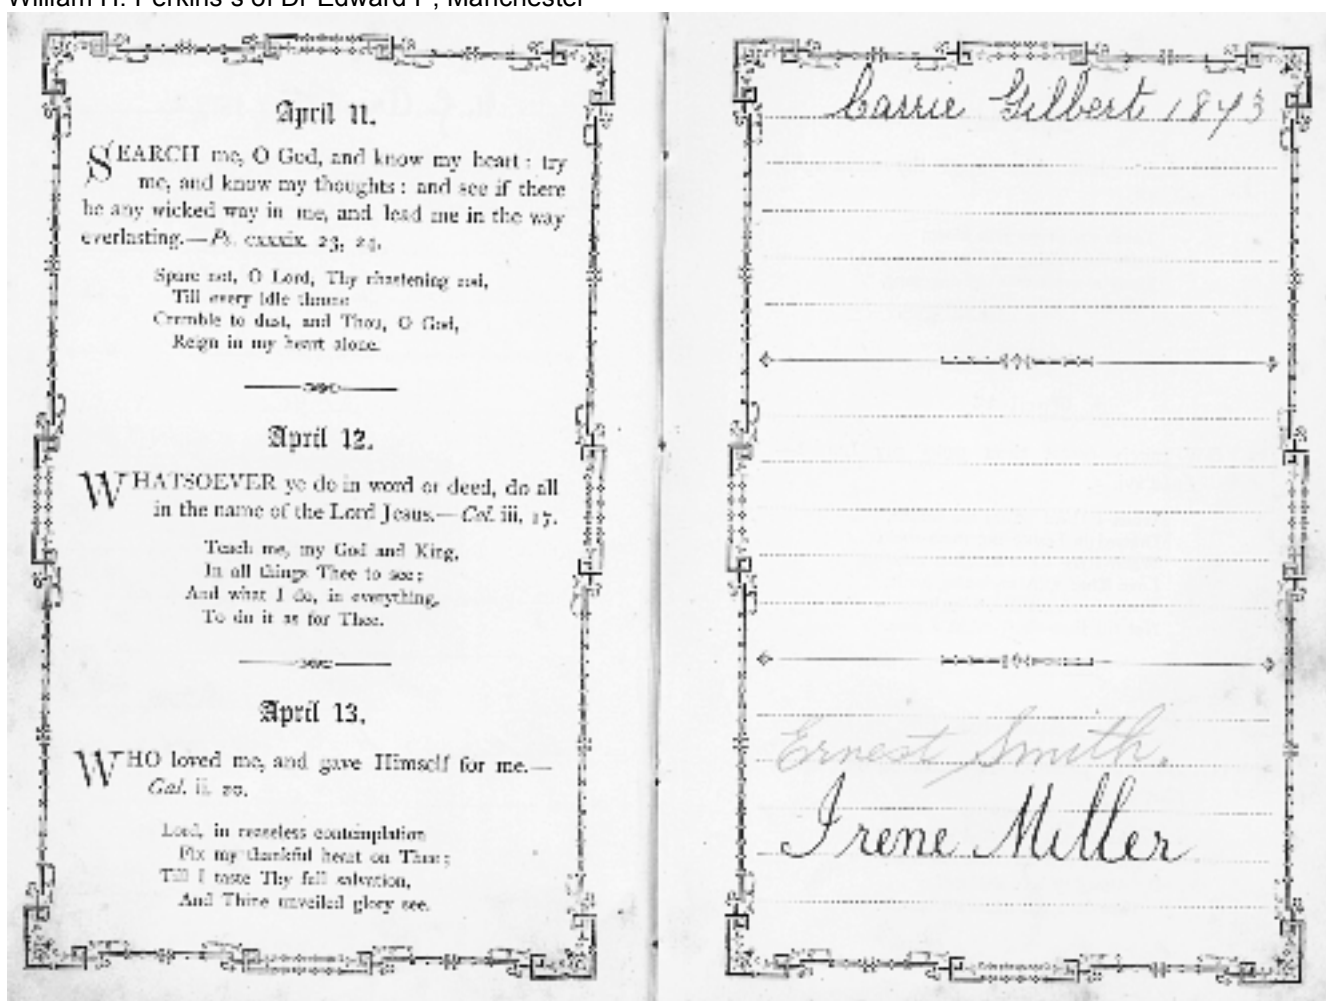 William H. Perkins s of Dr Edward P, Manchester
April 11.
SEARCH me, O God, and know my heart: try
me, and know my thoughts: and see if there
be any wicked way in me, and lead me in the way
everlasting.—Ps. cxxxix. 23, 24.
Spare not, O Lord, Thy chastening rod,
Till every idle throne
Crumble to dust, and Thou, O God,
Reign in my heart alone.
April 12.
WHATSOEVER ye do in word or deed, do all
in the name of the Lord Jesus.—Col. iii. 17.
Teach me, my God and King,
In all things Thee to see;
And what I do, in everything,
To do it as for Thee.
April 13.
WHO loved me, and gave Himself for me.—
Gal. ii. 20.
Lord, in ceaseless contemplation
Fix my thankful heart on Thee;
Till I taste Thy full salvation,
And Thine unveiled glory see.
Carrie Gilbert 1873
Ernest Smith.
Irene Miller